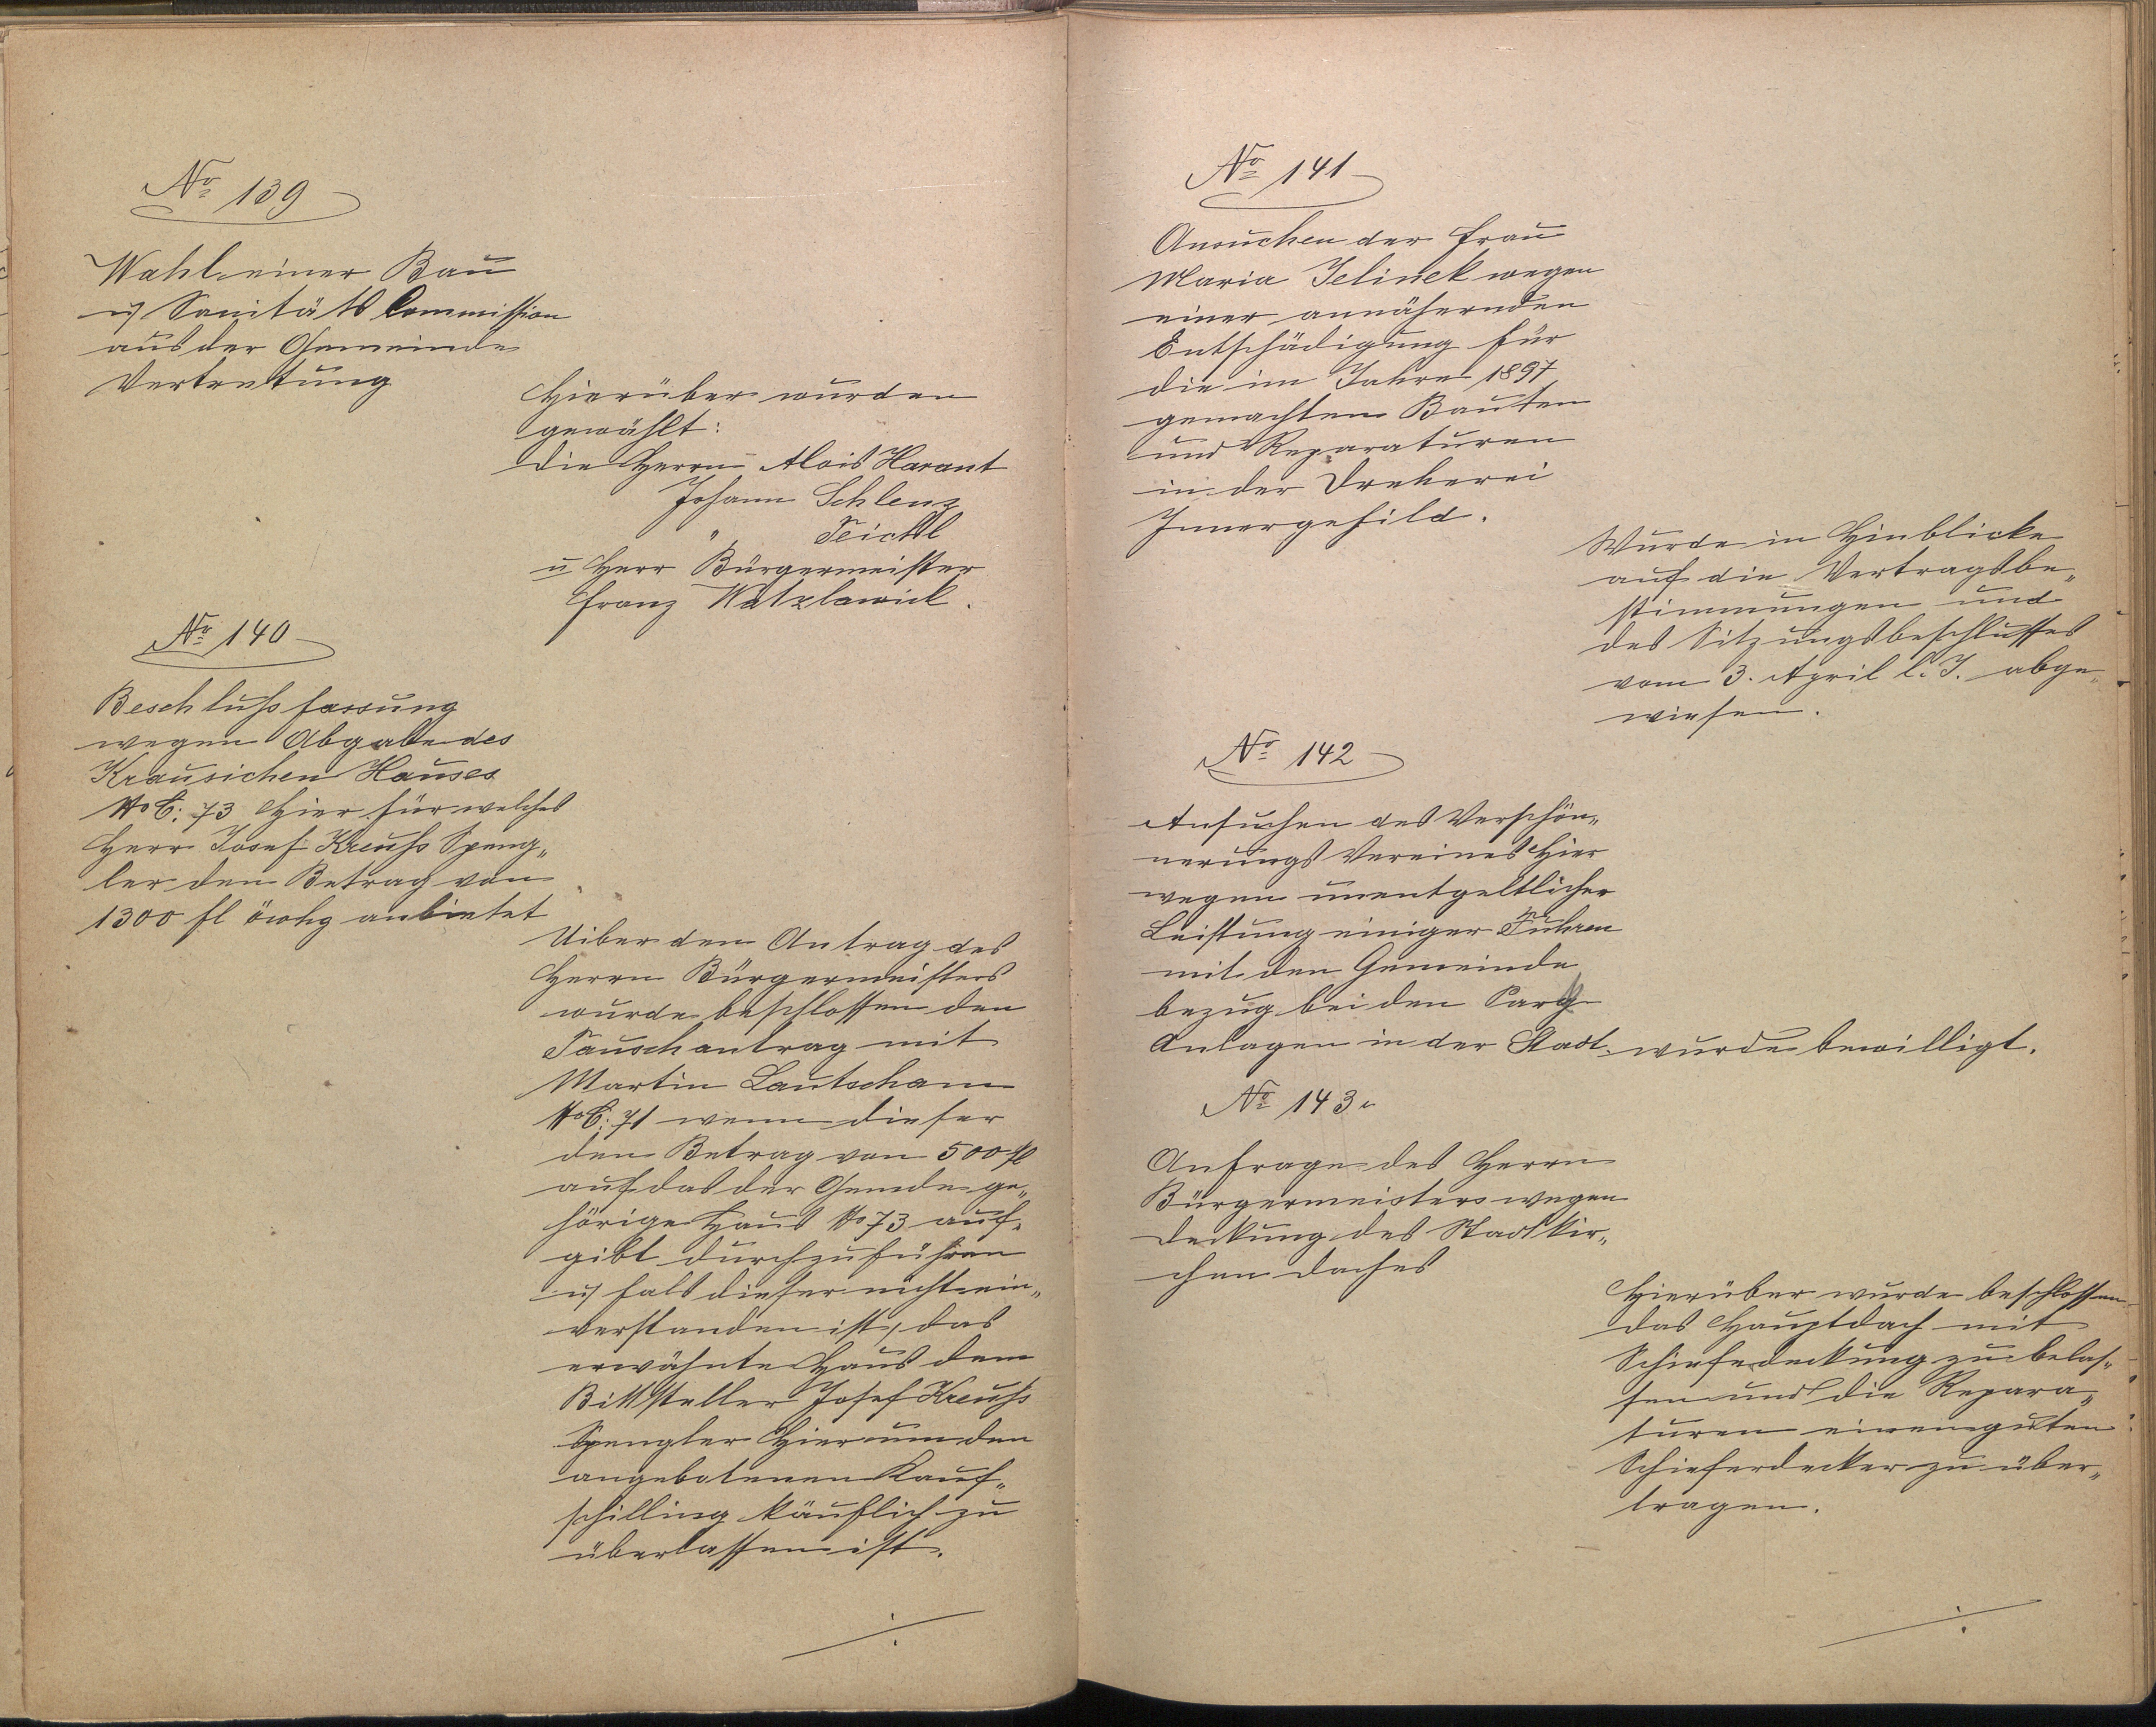 No 139
Wahl einer Bau
u Sanitäts Commission
aus der Gemeinde
Vertretung
Hierüber wurden
gewählt:
die Herrn Alois Harant
Johann Schlenz
" Teichtl
u Herr Bürgermeister
Franz Watzlawick.
No 140
Beschlußfassung
wegen Abgabe des
Krausichen Hauses
NoC: 73 Hier für welches
Herr Josef Kreuß Speng„
ler den Betrag von
1300 fl öwhg anbietet
Uiber den Antrag des
Herrn Bürgermeisters
wurde beschlossen den
Tauschantrag mit
Martin Lautscham
NoC: 71 wenn dieser
den Betrag von 500 fl
auf das der Gemde ge„
hörige Haus No 73 auf„
gibt durchzuführen
u falls dieser nicht ein„
verstanden ist, das
erwähnte Haus dem
Bittsteller Josef Kreuß
Spengler Hier um den
angebotenen Kauf„
schilling käuflich zu
überlassen ist.
No 141
Ansuchen der Frau
Maria Jelinek wegen
einer annähernden
Entschädigung für
die im Jahre 1897
gemachten Bauten
und Reparaturen
in der Dreherei
Innergefild.
Wurde in Hinblicke
auf die Vertragsbe„
stimmungen und
des Sitzungsbeschlusses
vom 3. April l. J. abge„
wiesen.
No 142
Ansuchen des Verschön„
nerungs Vereines Hier
wegen unentgeltlicher
Leistung einiger Fuhren
mit den Gemeinde
bezug bei den Parg
Anlagen in der Stadt wurde bewilligt.
No 143
Anfrage des Herrn
Bürgermeisters wegen
Deckung des Stadtkir„
chen daches
Hierüber wurde beschlossen
das Hauptdach mit
Schieferdeckung zu belas„
sen und die Repara„
turen einem guten
Schieferdecker zu über„
tragen.